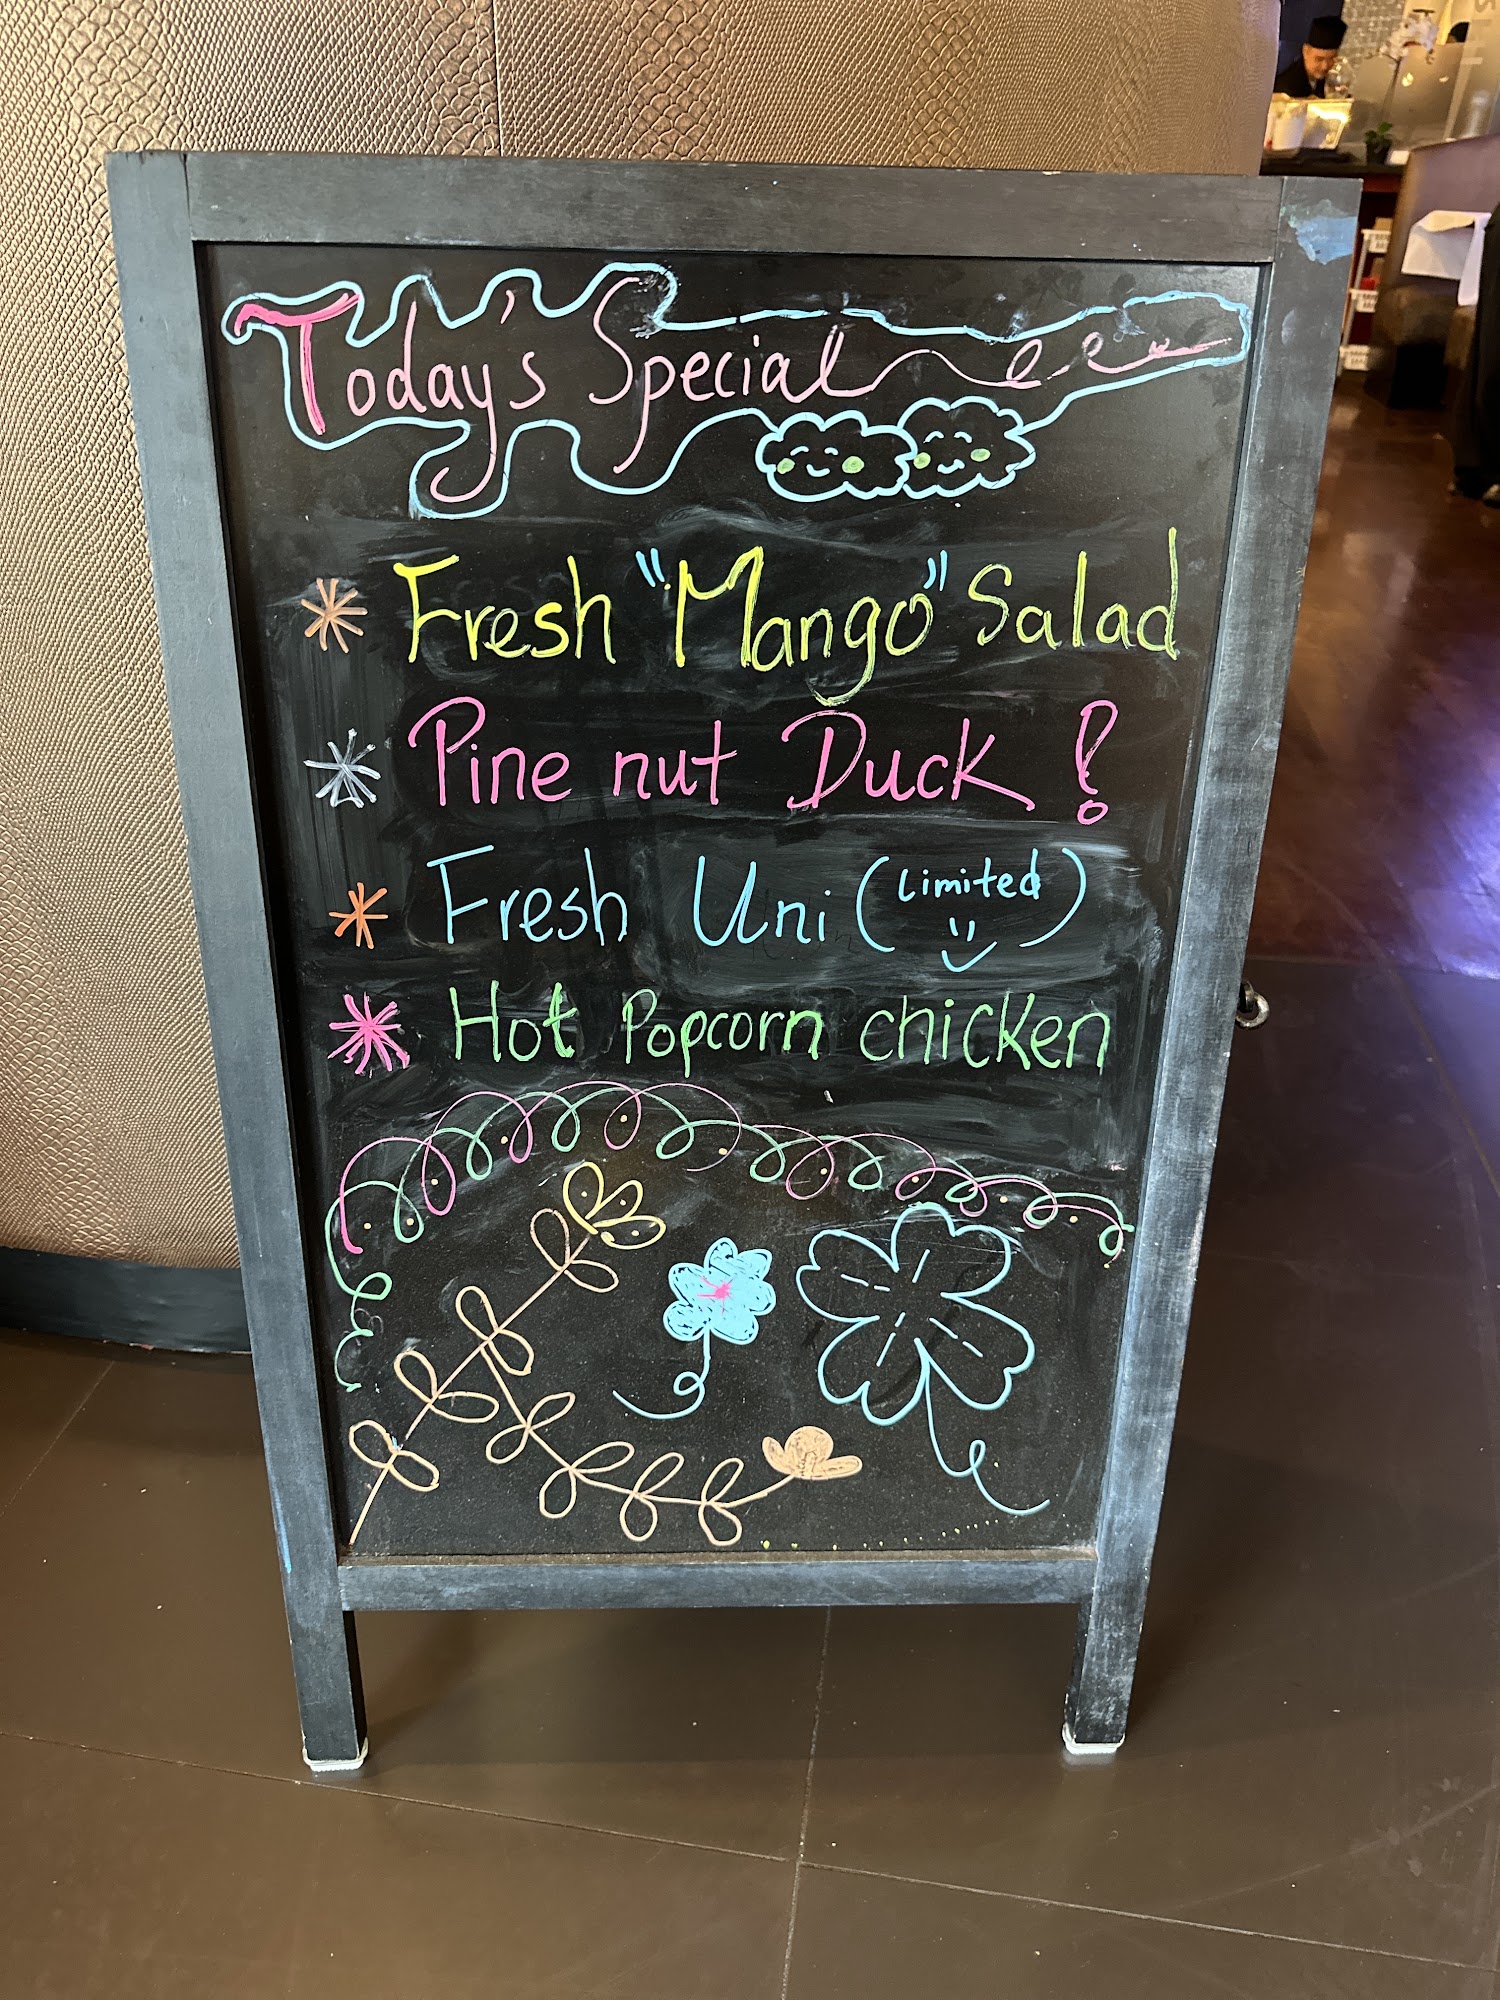 Today's Special
Fresh "Mango" Salad
Pine nut Duck !
Fresh Uni (Limited)
Hot Popcorn chicken